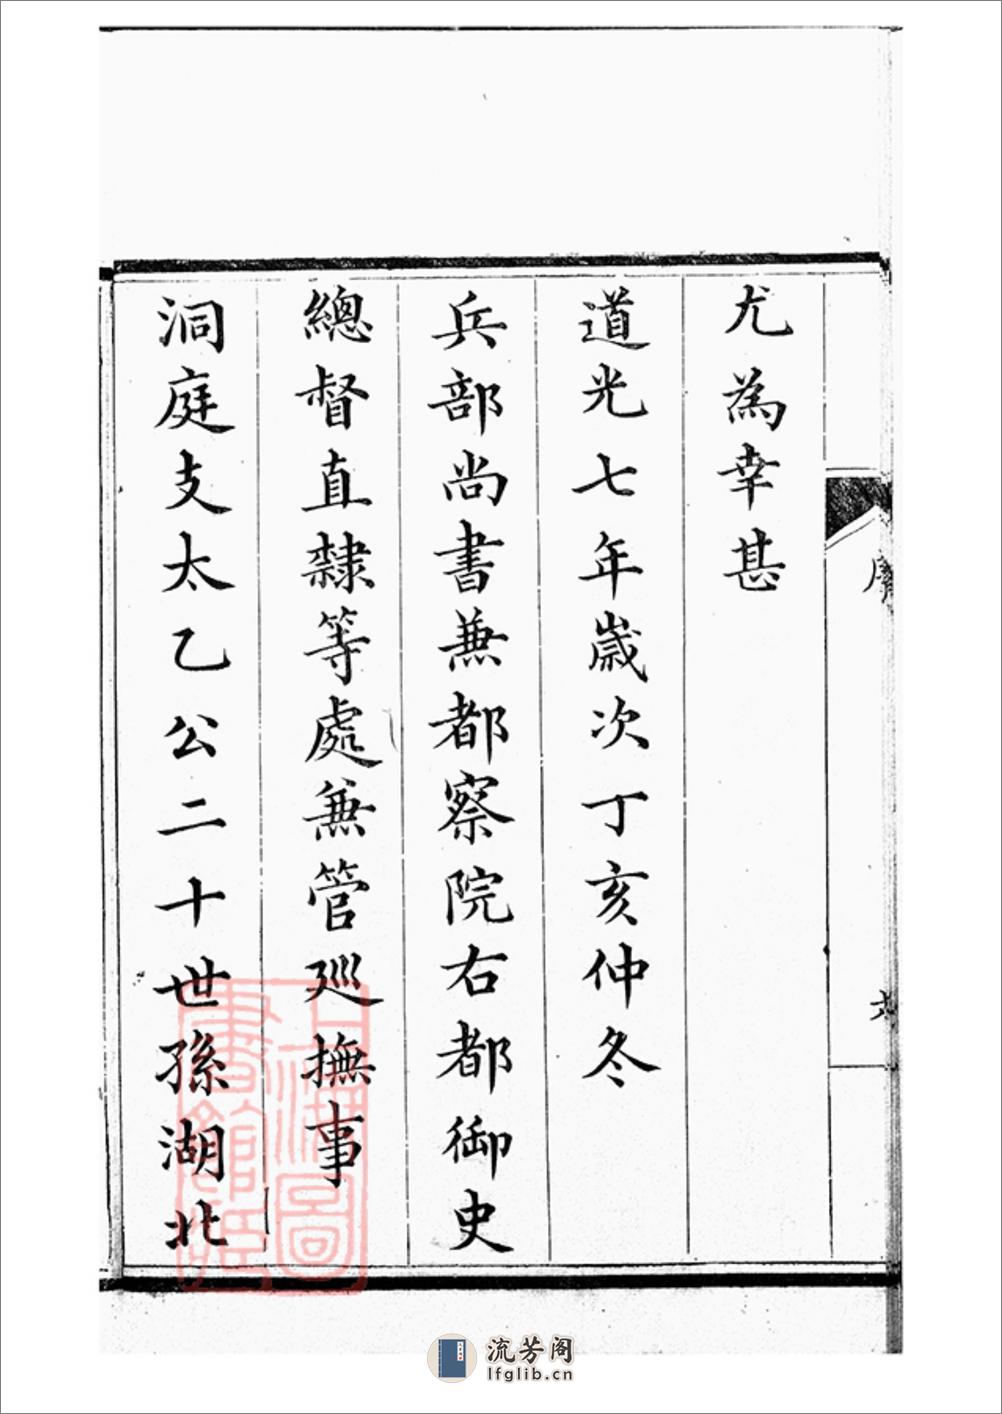 尤為幸甚
道光七年歲次丁亥仲冬
兵部尚書兼都察院右都御史
總督直隸等處兼管巡撫事
洞庭支太乙公二十世孫湖北
序
六
上海圖書館藏
流芳阁
lfglib.cn